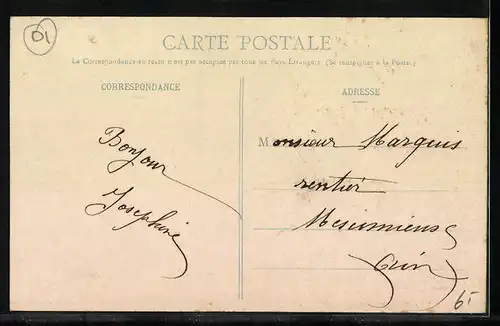 01
CARTE POSTALE
La Correspondance au recto n'est pas acceptée par tous les Pays Étrangers (Se renseigner à la Poste)
CORRESPONDANCE
ADRESSE
Bonjour
Josephine
Monsieur Marquis
rentier
Meximieux
Ain
6-